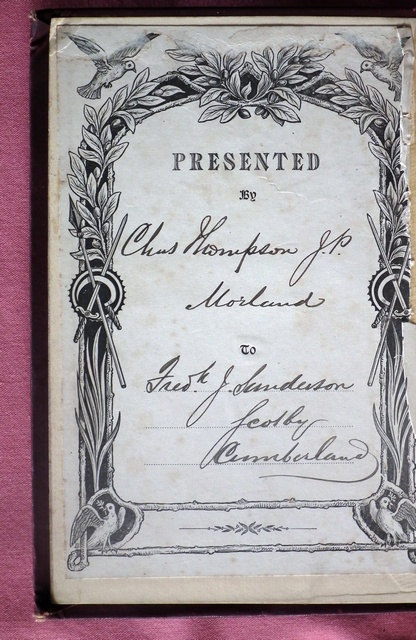 PRESENTED
By
Chas Thompson J.P.
Morland
To
Fredk J. Sanderson
Scotby
Cumberland